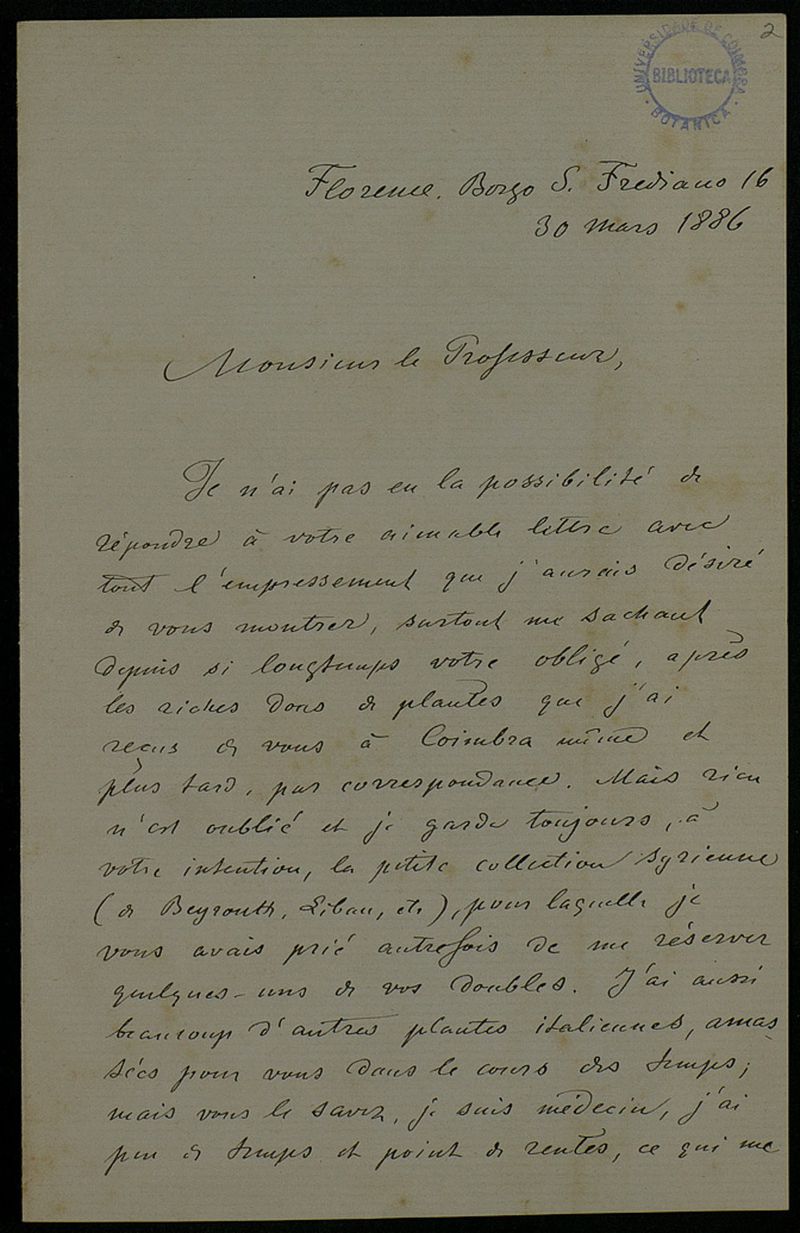 2
UNIVERSIDADE DE COIMBRA
BIBLIOTECA
BOTANICA
Florence. Borgo S. Frediano 16
30 mars 1886
Monsieur le Professeur,
Je n'ai pas eu la possibilité de
répondre à votre aimable lettre avec
tout l'empressement que j'aurais désiré
de vous montrer, surtout me sachant
depuis si longtemps votre obligé, après
les riches dons de plantes que j'ai
reçus de vous à Coimbra même et
plus tard, par correspondance. Mais rien
n'est oublié et je garde toujours, à
votre intention, la petite collection syrienne
(de Beyrouth, Liban, etc), pour laquelle je
vous avais prié autrefois de me réserver
quelques-uns de vos doubles. J'ai aussi
beaucoup d'autres plantes italiennes, amas
sées pour vous dans le cours des temps;
mais vous le savez, je suis médecin, j'ai
peu de temps et point de rentes, ce qui me